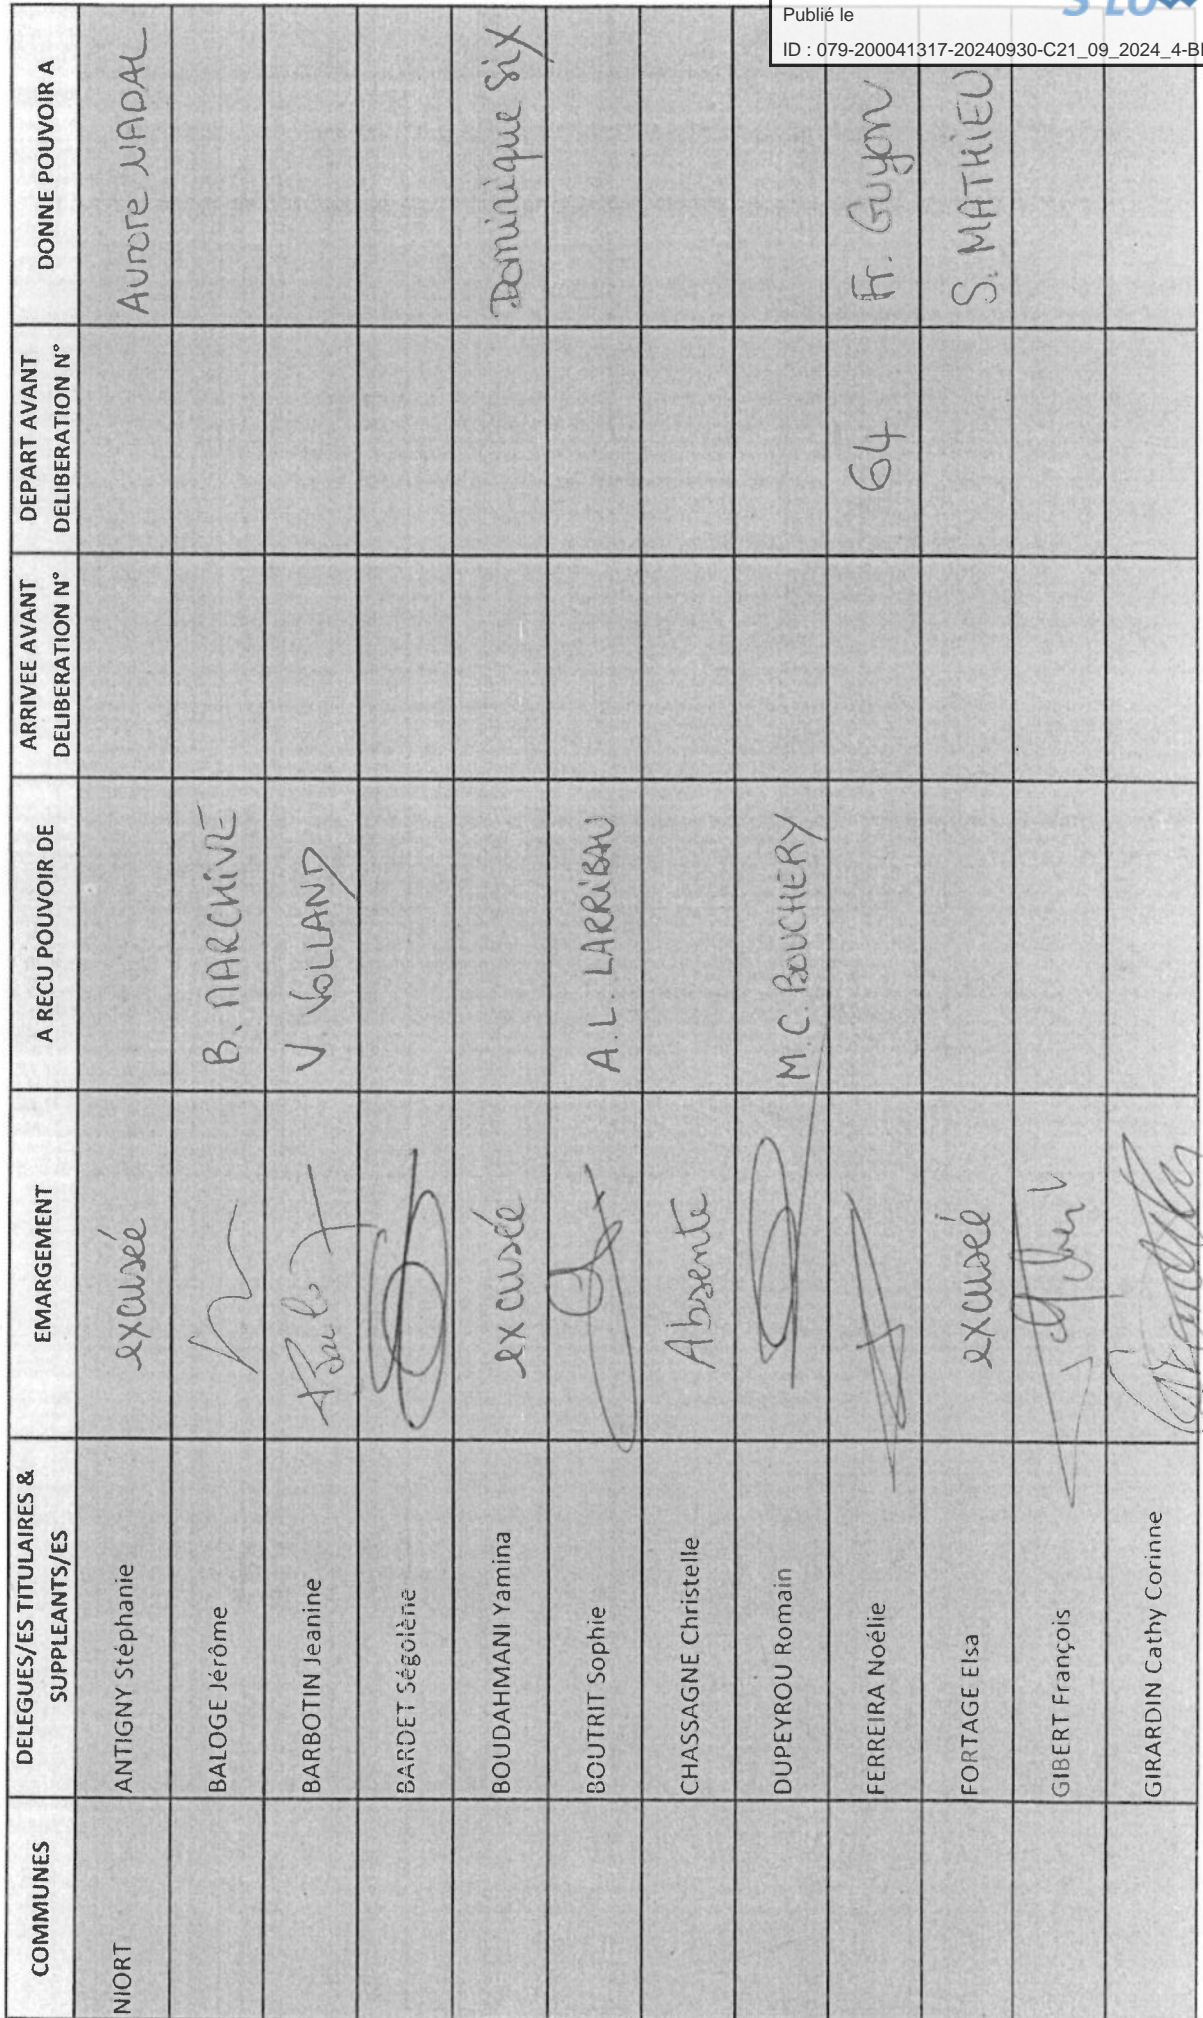 Publié le
ID : 079-200041317-20240930-C21_09_2024_4-
COMMUNES
DELEGUES/ES TITULAIRES &
SUPPLEANTS/ES
EMARGEMENT
A RECU POUVOIR DE
ARRIVEE AVANT
DELIBERATION N°
DEPART AVANT
DELIBERATION N°
DONNE POUVOIR A
NIORT
ANTIGNY Stéphanie
excusée
Aurore NADAL
BALOGE Jérôme
B. MARCHIVE
BARBOTIN Jeanine
V. VOLLAND
BARDET Ségolène
BOUDAHMANI Yamina
excusée
Dominique Six
BOUTRIT Sophie
A.L. LARRIBAU
CHASSAGNE Christelle
Absente
DUPEYROU Romain
M.C. BOUCHERY
FERREIRA Noélie
64
Fr. Guyon
FORTAGE Elsa
excusée
S. MATHIEU
GIBERT François
GIRARDIN Cathy Corinne